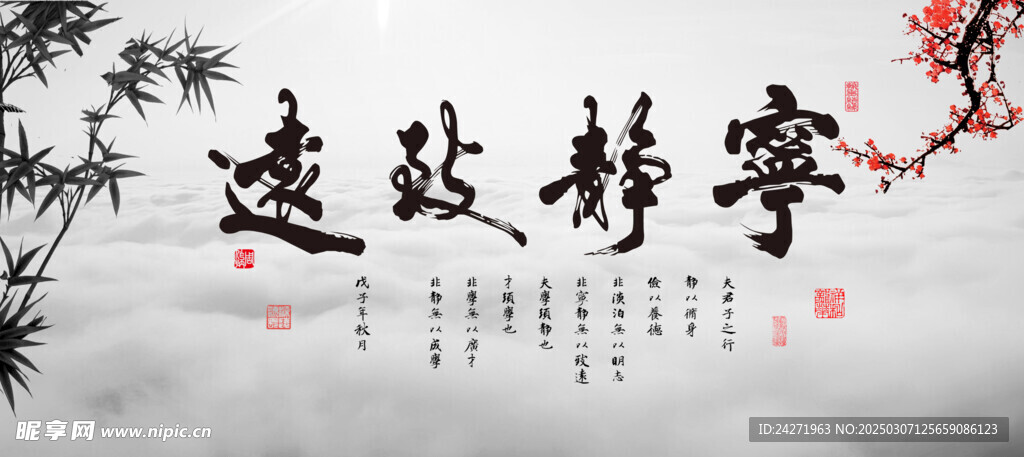 寧靜致遠
夫君子之行
靜以脩身
儉以養德
非澹泊無以明志
非寧靜無以致遠
夫學須靜也
才須學也
非學無以廣才
非靜無以成學
戊子年秋月
昵享网 www.nipic.cn
ID:24271963 NO:20250307125659086123